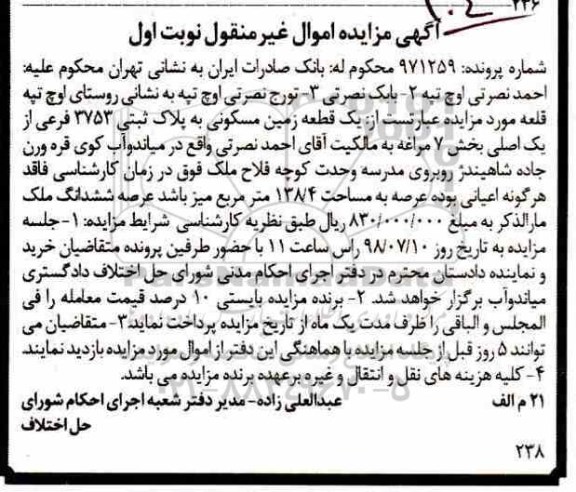 ۲۳۶
آگهی مزایده اموال غیر منقول نوبت اول
شماره پرونده: ۹۷۱۲۵۹ محکوم له: بانک صادرات ایران به نشانی تهران محکوم علیه:
احمد نصرتی اوج تپه ۲- بابک نصرتی ۳- تورج نصرتی اوج تپه به نشانی روستای اوج تپه
قلعه مورد مزایده عبارتست از: یک قطعه زمین مسکونی به پلاک ثبتی ۳۷۵۳ فرعی از
یک اصلی بخش ۷ مراغه به مالکیت آقای احمد نصرتی واقع در میاندوآب کوی قره ورن
جاده شاهیندژ روبروی مدرسه وحدت کوچه فلاح ملک فوق در زمان کارشناسی فاقد
هرگونه اعیانی بوده عرصه به مساحت ۱۳۸/۴ متر مربع میز باشد عرصه ششدانگ ملک
مارالذکر به مبلغ ۸۳۰/۰۰۰/۰۰۰ ریال طبق نظریه کارشناسی شرایط مزایده: ۱- جلسه
مزایده به تاریخ روز ۹۸/۰۷/۱۰ راس ساعت ۱۱ با حضور طرفین پرونده متقاضیان خرید
و نماینده دادستان محترم در دفتر اجرای احکام مدنی شورای حل اختلاف دادگستری
میاندوآب برگزار خواهد شد. ۲- برنده مزایده بایستی ۱۰ درصد قیمت معامله را فی
المجلس و الباقی را ظرف مدت یک ماه از تاریخ مزایده پرداخت نماید ۳- متقاضیان می
توانند ۵ روز قبل از جلسه مزایده با هماهنگی این دفتر از اموال مورد مزایده بازدید نمایند.
۴- کلیه هزینه های نقل و انتقال و غیره بر عهده برنده مزایده می باشد.
۲۱ م الف عبدالعلی زاده- مدیر دفتر شعبه اجرای احکام شورای
حل اختلاف
۲۳۸